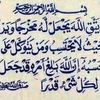 بسم الله الرحمن الرحيم
ومن يتق الله يجعل له مخرجا ويرزقه من
حيث لا يحتسب ومن يتوكل على
الله فهو حسبه إن الله بالغ أمره قد جعل الله
لكل شيء قدرا